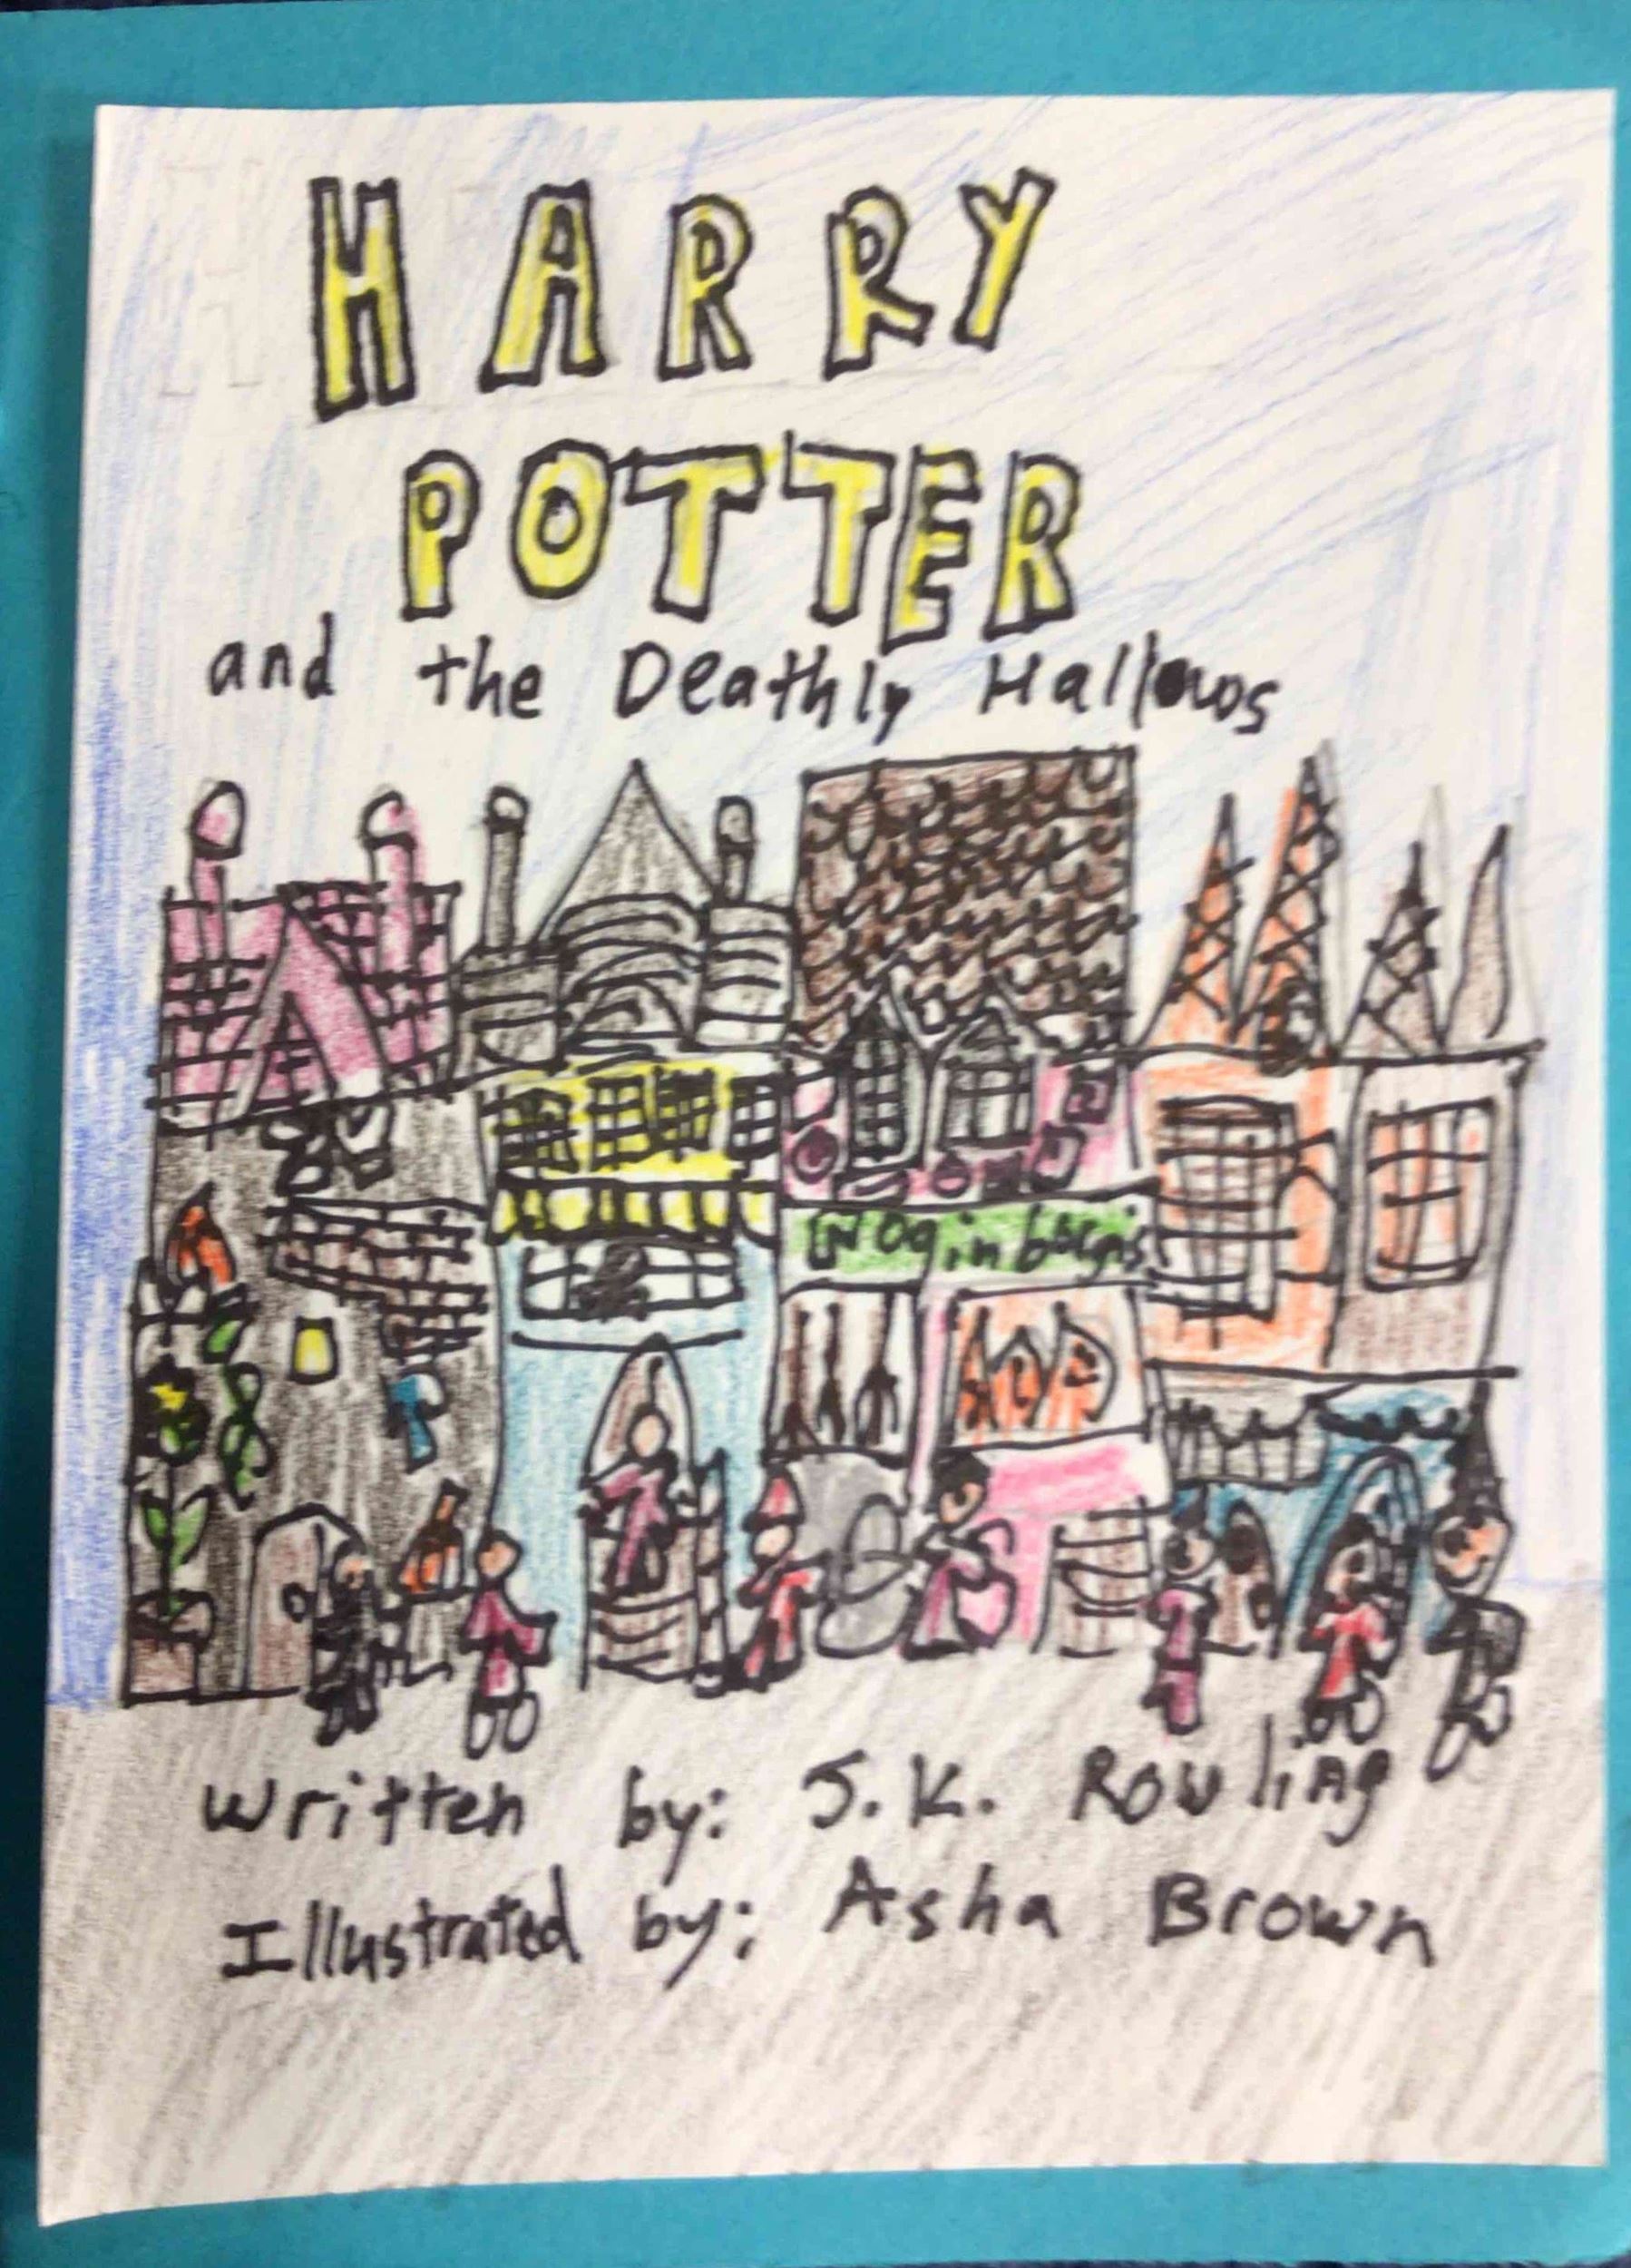 HARRY
POTTER
and the Deathly Hallows
Written by: J.K. Rowling
Illustrated by; Asha Brown